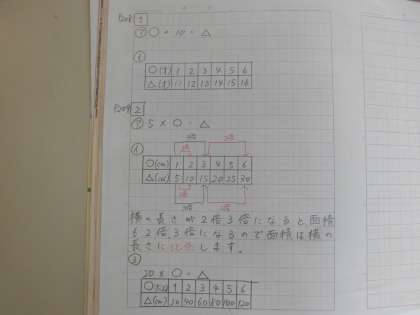 P208 1
㋐ ○ + 10 = △
㋑
○(才) 1 2 3 4 5 6
△(才) 11 12 13 14 15 16
P209 2
㋐ 5 × ○ = △
㋑
○(cm) 1 2 3 4 5 6
△(cm) 5 10 15 20 25 30
横の長さが2倍、3倍になると面積
も2倍、3倍になるので面積は横の
長さに比例します。
20 × ○ = △
1 2 3 4 5 6
△(cm) 20 40 60 80 100 120